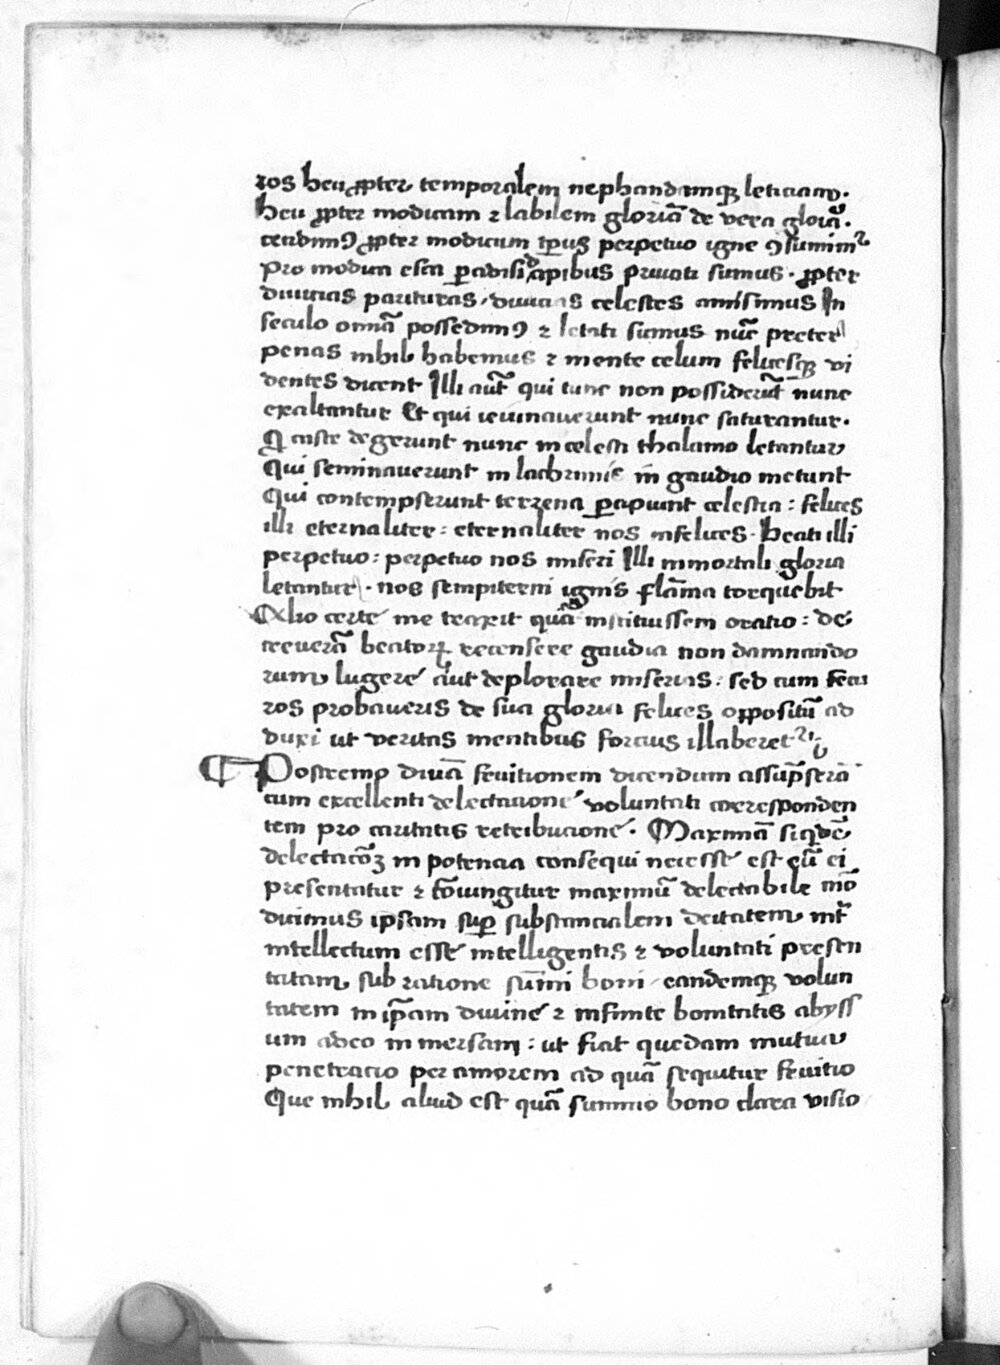 ros heu ꝓpter temporalem nephandamqꝫ leticiam.
heu ꝓpter modicam ⁊ labilem gloriã de vera gloĩa.
ꝓpter modicum tp̃us perpetuo igne ꝯsumimᷣ
pro modica esca ꝑadisi dapibus priuati sumus . ꝓpter
diuicias parituras, diuicias celestes amisimus In
seculo om̃ia possedimꝰ ⁊ letati sumus nũc preter
penas nihil habemus ⁊ mente celum felicesqꝫ vi
dentes dicent Illi aũt qui tunc non possiderũt nunc
exaltantur Et qui ieiunauerunt nunc saturantur.
Qi caste degerunt nunc in celesti thalamo letantur
Qui seminauerunt in lachrimis in gaudio metunt
Qui contempserunt terrena ꝑcipiunt celestia : felices
illi eternaliter : eternaliter nos infelices . Beati illi
perpetuo : perpetuo nos miseri Illi immortali gloria
letantur . nos sempiterni ignis flãma torquebit
Alio certe me traxit quã instituissem oratio : de
creuerã beatoꝝ recensere gaudia non damnando
rum lugere aut deplorare miserias : sed cum
ros probaueris de sua gloria felices oppositũ ad
duxi ut veritas mentibus forcius illaberetᷣ
Postremo diuiã fruitionem dicendum
cum excellenti delectacione voluntati corresponden
tem pro caritatis retribucione. Maximã siqdẽ
delectacõꝫ in potencia consequi necesse est cũ ei
presentatur ⁊ cõiungitur maximũ delectabile mõ
diximus ipsam suꝑ substancialem deitatem int̃
intellectum esse intelligentis ⁊ voluntati presen
tatam sub ratione sũmi boni eandemqꝫ volun
tatem in ip̃am diuine ⁊ infinite bonitatis abyss
um adeo inmersam : ut fiat quedam mutua
penetracio per amorem ad quã sequitur fruitio
Que nihil aliud est quã summo bono clara visio